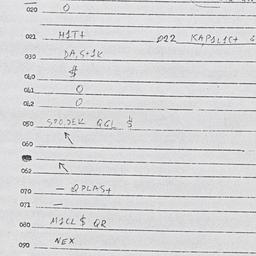 020 0
021 H1T+ 022 KAP1L1C+
030 DA,S+1K
040 $
041 0
042 0
050 SPO,DEK QGL $
060 ↖
062 ↖
070 — QPLAS+
071 —
080 M1CL $ QR
090 NEX